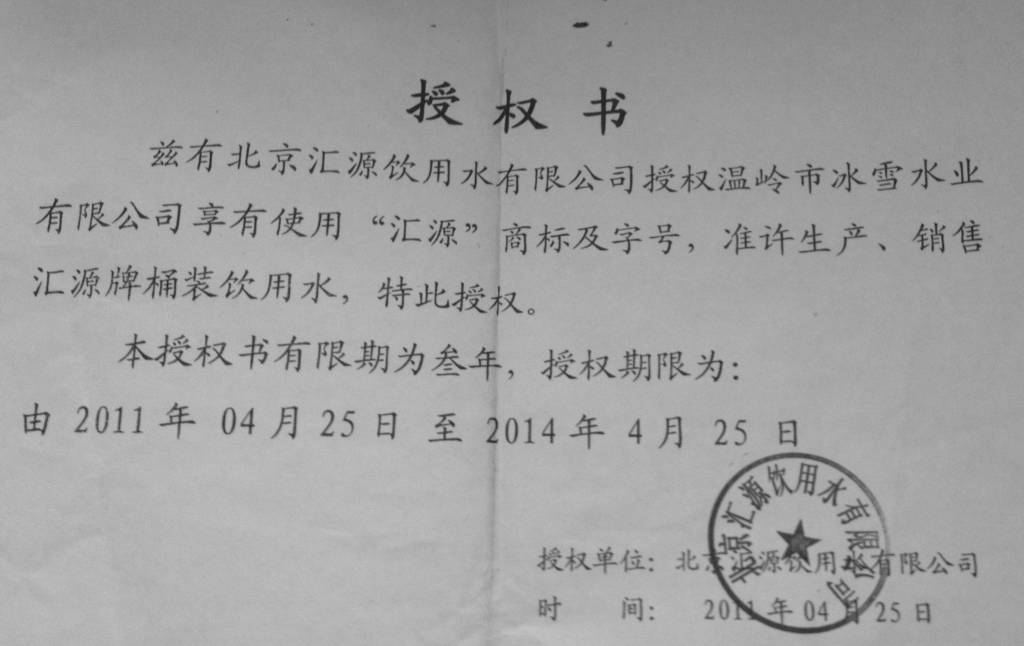 授权书
兹有北京汇源饮用水有限公司授权温岭市冰雪水业
有限公司享有使用“汇源”商标及字号，准许生产、销售
汇源牌桶装饮用水，特此授权。
本授权书有限期为叁年，授权期限为：
由 2011 年 04 月 25 日 至 2014 年 4 月 25 日
北京汇源饮用水有限公司
授权单位：北京汇源饮用水有限公司
时 间： 2011 年 04 月 25 日